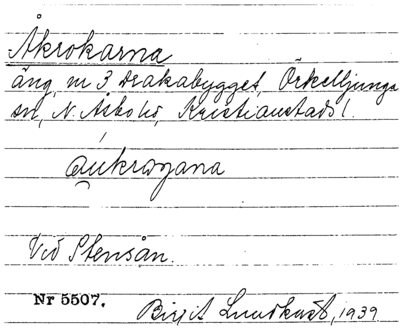 Åkrokarna
äng, nr 3 Drakabygget, Örkelljunga
sn, N. Åsbo hd, Kristianstads l.
Vid Stensån.
Nr 5507.
Birgit Lundkvist, 1939